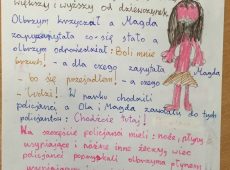 większy i wyższy od dziewczynek
Olbrzym krzyczał a Magda
zapytała co się stało a
olbrzym odpowiedział: Boli mnie
brzuch! - a dla czego zapytała Magda
- bo się przejadłem! - a czego
- Ludzi! W parku chodzili
policjanci a Ola i Magda zawołały do tych
policjantów: Chodźcie tutaj!
Na szczęście policjanci mieli: noże, płyny
usypiające i różne inne rzeczy, więc
policjanci popsykali olbrzyma płynem
usypiającym